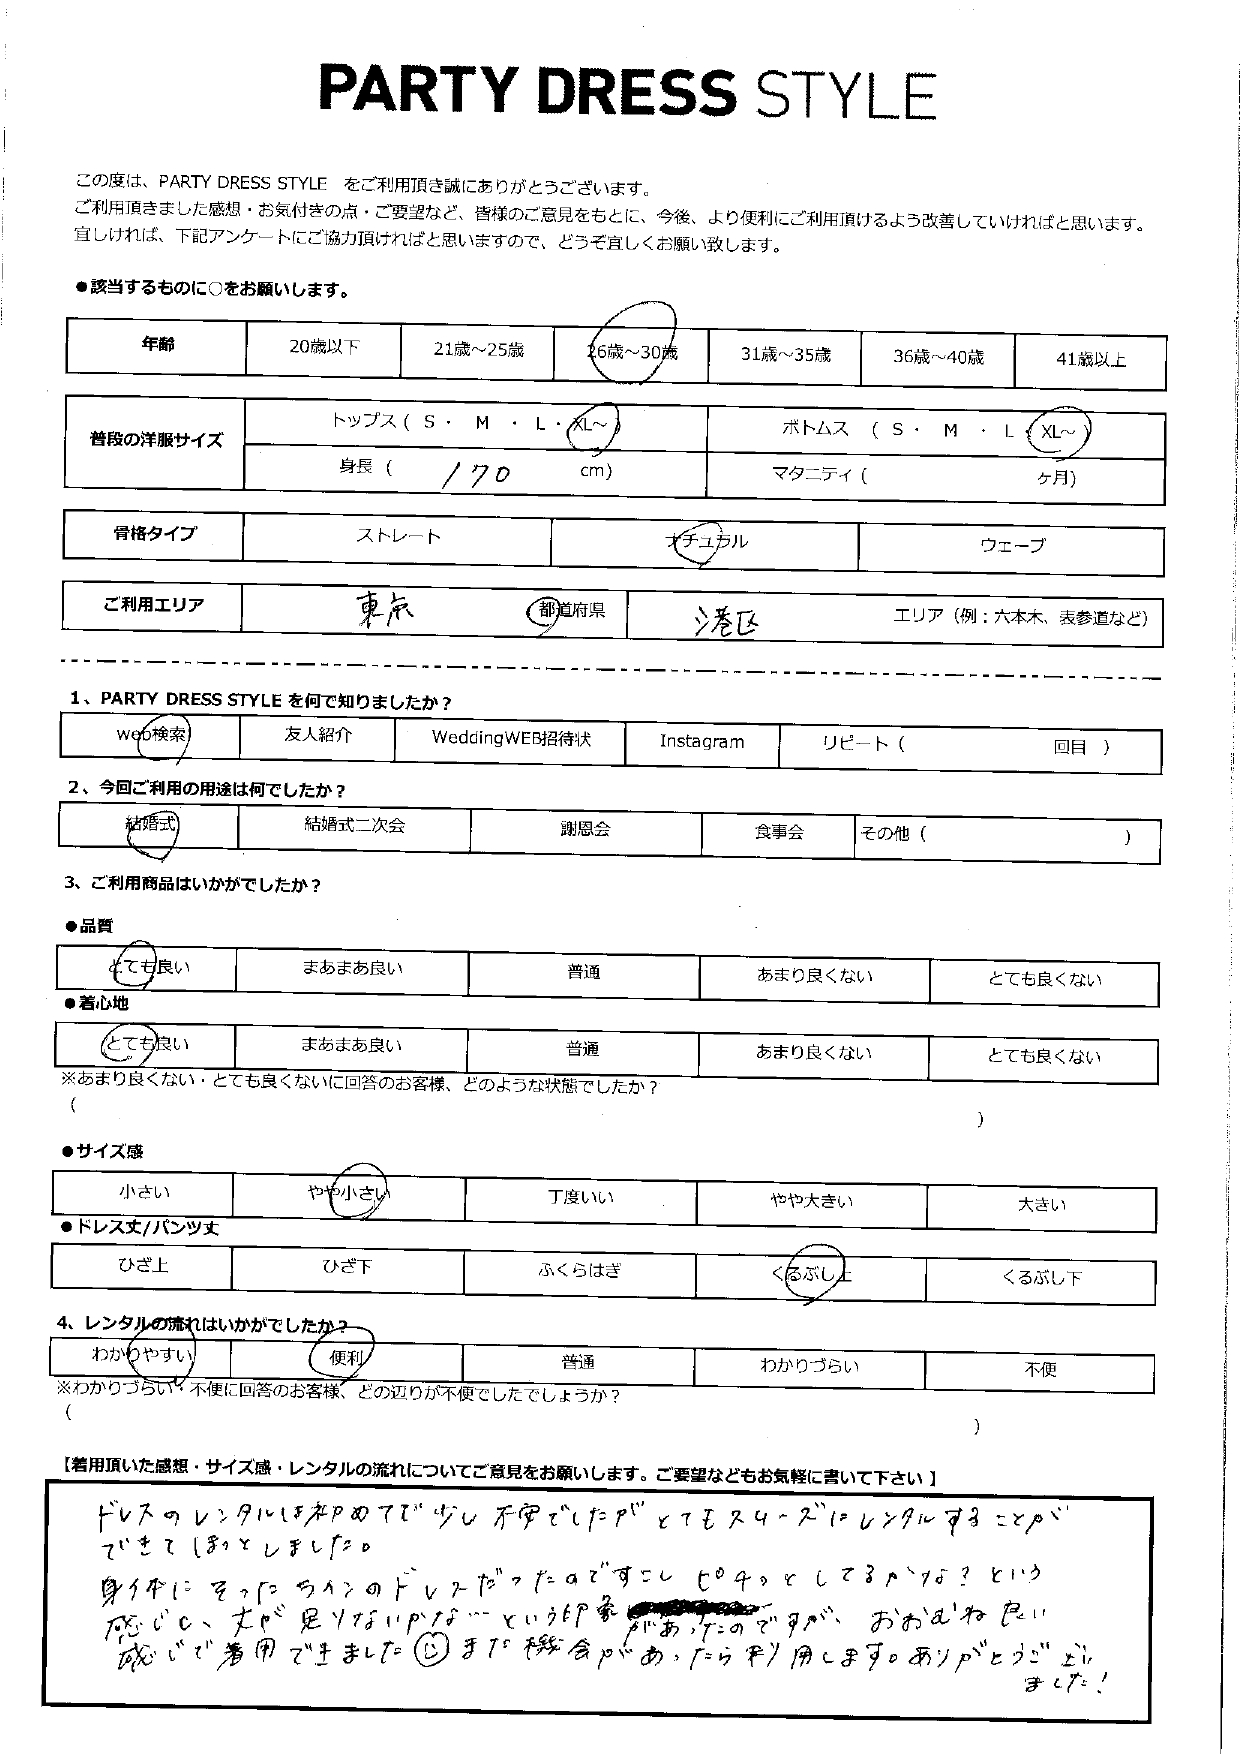 PARTY DRESS STYLE
この度は、PARTY DRESS STYLE をご利用頂き誠にありがとうございます。
ご利用頂きました感想・お気付きの点・ご要望など、皆様のご意見をもとに、今後、より便利にご利用頂けるよう改善していければと思います。
宜しければ、下記アンケートにご協力頂ければと思いますので、どうぞ宜しくお願い致します。
●該当するものに○をお願いします。
年齢 20歳以下 21歳～25歳 26歳～30歳 31歳～35歳 36歳～40歳 41歳以上
普段の洋服サイズ トップス ( S ・ M ・ L ・ XL～ ) ボトムス ( S ・ M ・ L ・ XL～ )
身長 ( 170 cm) マタニティ ( ヶ月)
骨格タイプ ストレート ナチュラル ウェーブ
ご利用エリア 東京 都道府県 港区 エリア（例：六本木、表参道など）
1、PARTY DRESS STYLE を何で知りましたか？
web検索 友人紹介 WeddingWEB招待状 Instagram リピート ( 回目 )
2、今回ご利用の用途は何でしたか？
結婚式 結婚式二次会 謝恩会 食事会 その他 ( )
3、ご利用商品はいかがでしたか？
●品質
とても良い まあまあ良い 普通 あまり良くない とても良くない
●着心地
とても良い まあまあ良い 普通 あまり良くない とても良くない
※あまり良くない・とても良くないに回答のお客様、どのような状態でしたか？
( )
●サイズ感
小さい やや小さい 丁度いい やや大きい 大きい
●ドレス丈/パンツ丈
ひざ上 ひざ下 ふくらはぎ くるぶし上 くるぶし下
4、レンタルの流れはいかがでしたか？
わかりやすい 便利 普通 わかりづらい 不便
※わかりづらい・不便に回答のお客様、どの辺りが不便でしたでしょうか？
( )
【着用頂いた感想・サイズ感・レンタルの流れについてご意見をお願いします。ご要望などもお気軽に書いて下さい】
ドレスのレンタルは初めてで少し不安でしたがとてもスムーズにレンタルすることが
できてほっとしました。
身体にそったラインのドレスだったのですこしピチっとしてるかな？という
感じと、丈が足りないかな…という印象があったのですが、おおむね良い
感じで着用できました☺また機会があったら利用します。ありがとうござい
ました！